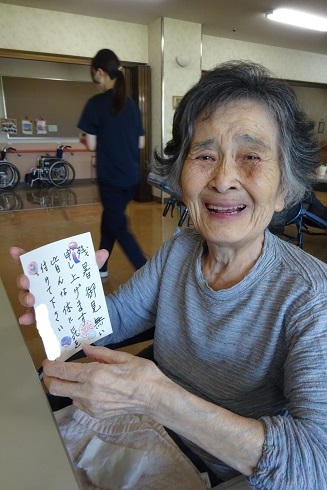 残暑 御見舞い
申し上げます
皆んな体に気を
付けて下さい